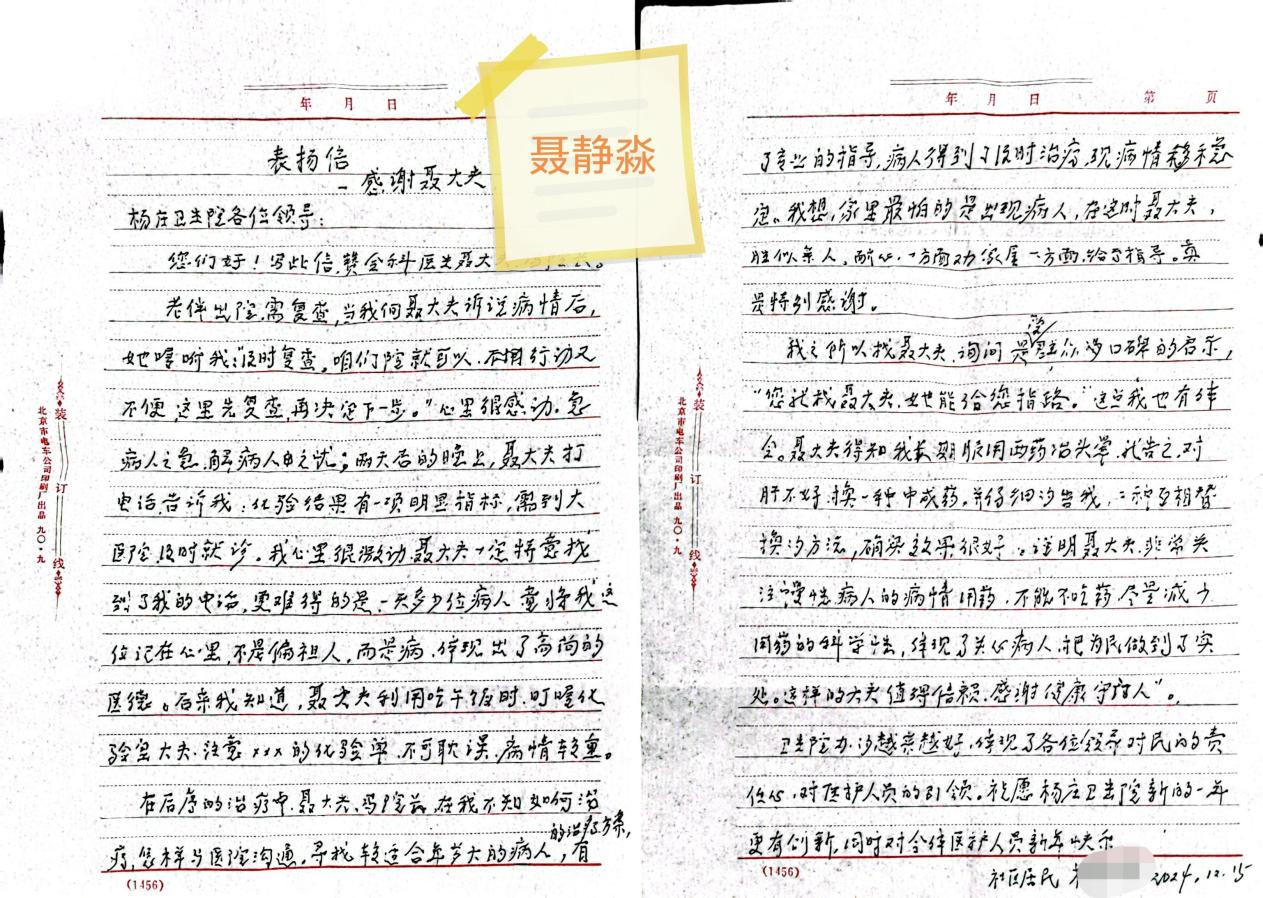 聂静淼
年 月 日
表扬信
- 感谢聂大夫
杨庄卫生院各位领导:
您们好!写此信赞全科医生聂大夫
老伴出院,需复查,当我向聂大夫诉说病情后,
她嘱咐我:"及时复查。咱们院就可以,不用行动又
不便,这里先复查,再决定下一步。"心里很感动。急
病人之急,解病人由之忧;两天后的晚上,聂大夫打
电话告诉我:化验结果有一项明显指标,需到大
医院及时就诊。我心里很激动,聂大夫一定特意找
到了我的电话,更难得的是一天多少位病人竟将我这
位记在心里,不是偏袒人,而是病,体现出了高尚的
医德。后来我知道,聂大夫利用吃午饭时,叮嘱化
验室大夫:注意xxx的化验单,不可耽误,病情较重。
在后序的治疗中,聂大夫、冯院长,在我不知如何治
疗,怎样与医院沟通,寻找较适合年岁大的病人的治疗方案,有
(1456)
装订线
北京市电车公司印刷厂出品 九〇·九
年 月 日 第 页
了专业的指导,病人得到了及时治疗,现病情稳
定。我想,家里最怕的是出现病人,在这时聂大夫,
胜似亲人,耐心,一方面劝家属一方面给予指导。真
是特别感谢。
我之所以找聂大夫询问是受群众的口碑的启示,
"您就找聂大夫,她能给您指路。"这点我也有体
会。聂大夫得知我长期服用西药治头晕,就告之,对
肝不好,换一种中成药。并仔细的告我,二种互相替
换的方法,确实效果很好。证明聂大夫非常关
注慢性病人的病情用药,不能不吃药,尽量减少
用药的科学性,体现了关心病人,把为民做到了实
处。这样的大夫值得信赖,感谢"健康守门人"。
卫生院办的越来越好,体现了各位领导对民的责
任心,对医护人员的引领。祝愿杨庄卫生院新的一年
更有创新,同时对全体医护人员新年快乐
社区居民
2024.12.15
(1456)
装订线
北京市电车公司印刷厂出品 九〇·九